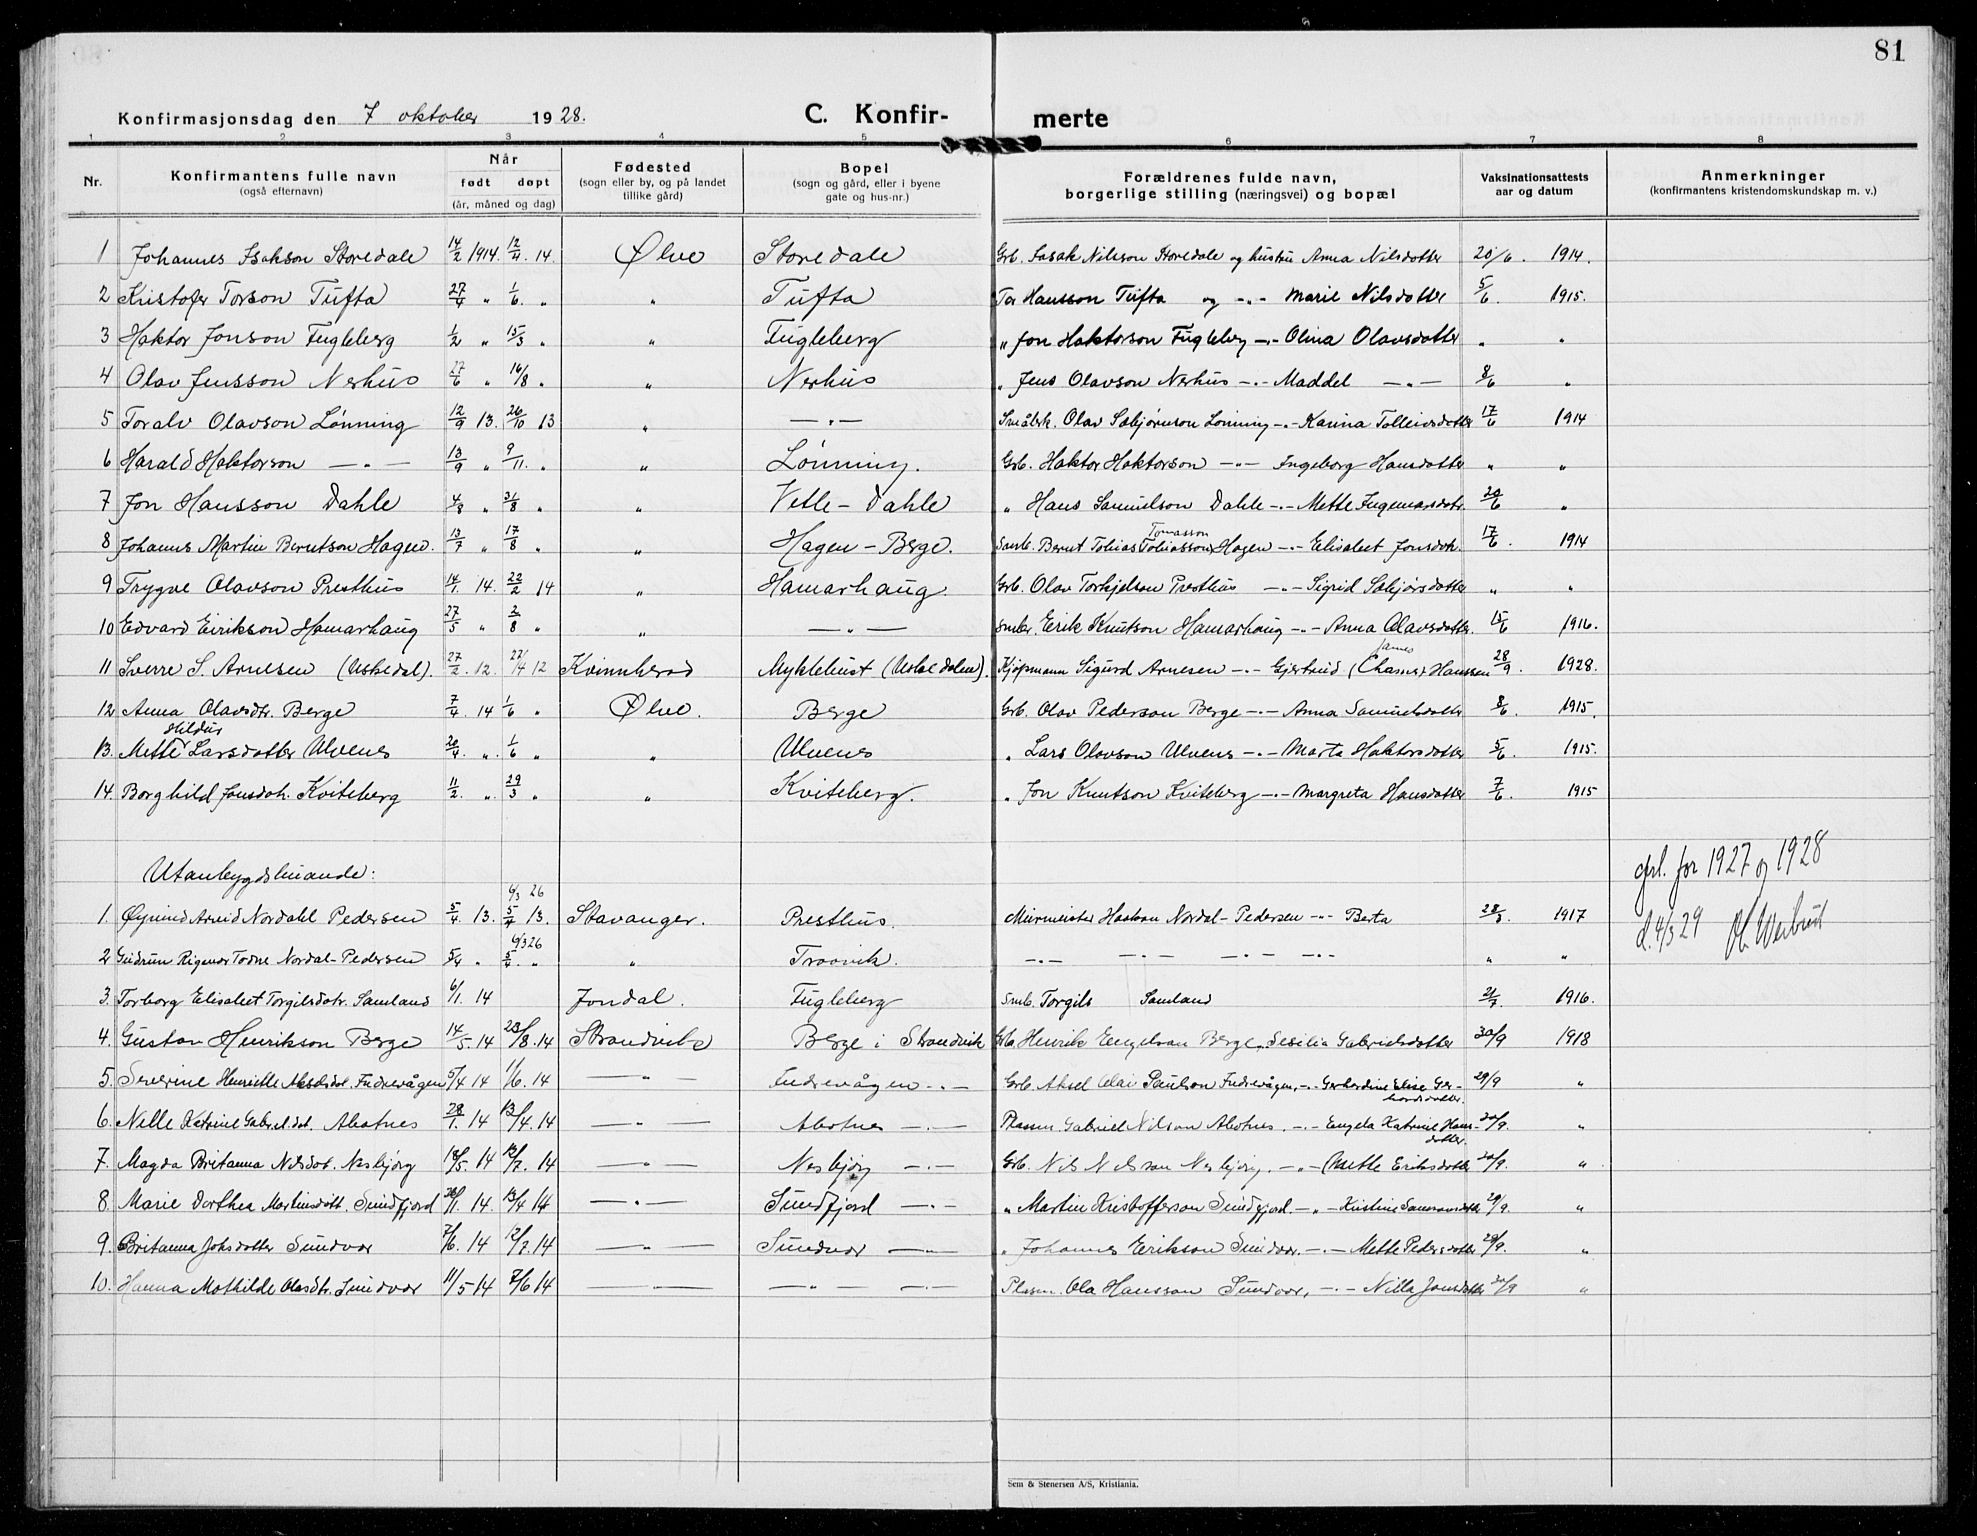 81
Konfirmasjonsdag den 7 oktober 1928. C. Konfir- merte
1 2 3 4 5 6 7 8
Nr. Konfirmantens fulle navn (også efternavn) Når født døpt (år, måned og dag) Fødested (sogn eller by, og på landet tillike gård) Bopel (sogn og gård, eller i byene gate og hus-nr.) Forældrenes fulde navn, borgerlige stilling (næringsvei) og bopæl Vaksinationsattests aar og datum Anmerkninger (konfirmantens kristendomskundskap m. v.)
1 Johannes Isakson Storedale 14/2 1914. 12/4 14. Ølve Storedale Grb. Isak Nilsson Storedale og hustru Anna Nilsdotter 20/6. 1914.
2 Kristofer Torson Tufta 27/4 " 1/6. " " Tufta Tor Hansson Tufta og -"- Marie Nilsdotter 5/6. 1915.
3 Haktor Jonson Fugleberg 1/2 " 15/3 " " Fugleberg " Jon Haktorson Fugleberg -"- Olina Olavsdotter " "
4 Olav Jensson Nerhus 27/6 " 16/8 " " Nerhus " Jens Olavson Nerhus -"- Maddel -"- 8/6 "
5 Toralv Olavson Lønning 12/9 13. 26/10 13 " -"- Småbrk. Olav Sebjørnson Lønning -"- Karina Tolleivsdotter 17/6 1914
6 Harald Haktorson -"- 13/9 " 9/11. " " Lønning. Grb. Haktor Haktorson -"- Ingeborg Hansdotter " "
7 Jon Hansson Dahle 4/8 " 31/8 " " Vetle-Dahle " Hans Samuelson Dahle -"- Mette Ingemarsdotr. 20/6 "
8 Johannes Martin Berntson Hagen. 13/7 " 17/8 " " Hagen-Berge. Smb. Bernt Tobias Tobiasson Tomasson Hagen -"- Elisabet Jonsdotr. 17/6. 1914
9 Trygve Olavson Presthus 14/1 14. 22/2 14 " Hamarhaug Grb. Olav Torkjelson Presthus -"- Sigrid Sebjørsdotter " "
10 Edvard Eirikson Hamarhaug 27/5 " 2/8 " " -"- Smbr. Eirik Knutson Hamarhaug -"- Anna Olavsdotter. 15/6 1916.
11 Sverre S. Arnesen (Uskedal). 27/2 12. 22/4 12 Kvinnherad Myklebust (Uskedalen). Kjøpmann Sigurd Arnesen -"- Gjertrud Hanssen 28/9. 1928.
12 Anna Olavsdtr. Berge 7/4. 14 1/6 " Ølve. Berge Grb. Olav Pederson Berge -"- Anna Samuelsdotter 8/6. 1915.
13. Mette Hildur Larsdotter Ulvenes 20/4 " 1/6 " " Ulvenes " Lars Olavson Ulvenes -"- Marta Haktorsdotter 5/6 1915.
14. Borghild Jonsdotr. Kviteberg 11/2. " 29/3 " " Kviteberg. " Jon Knutson Kviteberg -"- Margreta Hansdotter 7/6. 1915
Utanbygdsbuande:
gfrl. for 1927 og 1928
d. 4/3 29
1. Øyvind Arvid Nordahl Pedersen 5/4 13. 6/3 26 5/4 13. Stavanger. Presthus. Murmeister Haakon Nordal-Pedersen -"- Berta 28/3. 1917
2 Gudrun Rigmor Todne Nordal-Pedersen 5/4 " 6/3 26 5/4. " " Troovik. -"- -"- -"- -"- " "
3. Torborg Elisabet Torgilsdotr. Samland 6/1. 14 Jondal. Fugleberg Smb. Torgils Samland 21/7 1916.
4. Gustav Henrikson Berge 14/5. 14 23/8. 14 Strandvik Berge i Strandvik Grb. Henrik Engelson Berge, Sesilia Gabrielsdotter 30/9 1918
5. Severine Henriette Akselsdot. Indrevågen 5/4 14 1/6. 14 -"- Indrevågen -"- Grb. Aksel Olai Paulson Indrevågen, -"- Gerhardine Elise Gerhardsdotter. 29/9 "
6. Nelle Katrine Gabrieldot. Alsotnes 28/1. 14 13/4. 14 -"- Alsotnes -"- Plassm. Gabriel Nilson Alsotnes. -"- Engela Katrine Hansdotter. 20/9. "
7. Magda Britanna Nilsdot. Nesbjørg 18/5. 14 12/7. 14 -"- Nesbjørg -"- Grb. Nils Nilsson Nesbjørg. -"- Mette Eriksdotter 20/9. "
8. Marie Dorthea Martinsdott. Sundfjord 20/1. 14. 13/4 14 -"- Sundfjord -"- " Martin Kristofferson Sundfjord. -"- Kristine 29/9. "
9. Britanna Johsdotter Sundvor 7/6. 14 12/7. 14 -"- Sundvor -"- " Johannes Erikson Sundvor. -"- Mette Pedersdotter 29/9. "
10. Hanna Mathilde Olasdtr. Sundvor 11/5 14 7/6 14 -"- -"- -"- Plassm. Ola Hansson Sundvor, -"- Nilla Jonsdotter 20/9 "
Sem & Stenersen A/S, Kristiania.